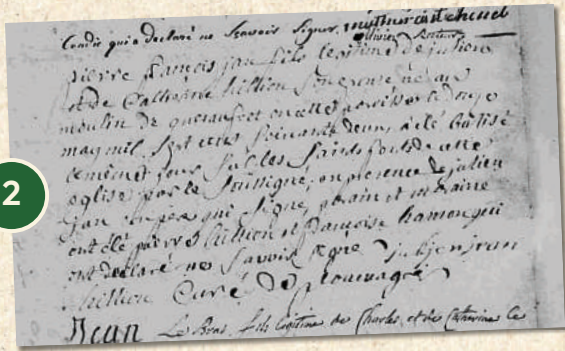 Condic qui a declaré ne scavoir signer
pierre francois jan fils legitime de julien
et de Catherine hillion son epouse né au
moulin de en cette paroisse le douze
may mil sept cents soixante deux, a été batisé
le meme jour sur les fonds de cette
eglise par le soussigné, en presence de julien
jan son pere qui signe, parain et maraine
ont été pierre hillion et francoise hamon qui
ont declaré ne savoir signer julien jean
hillion Curé de plouuagré
Jean Le Bras, fils legitime de Charles, et de Catherine Le
2